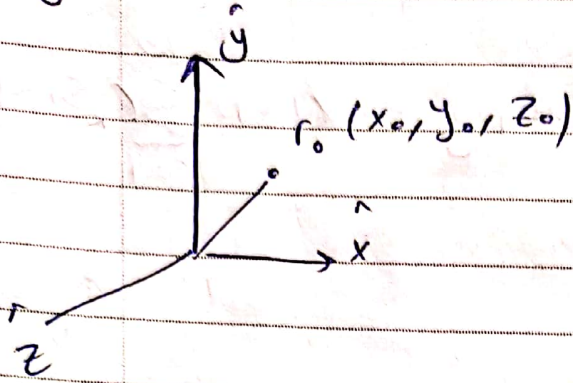 ŷ
r₀ (x₀, y₀, z₀)
x̂
ẑ